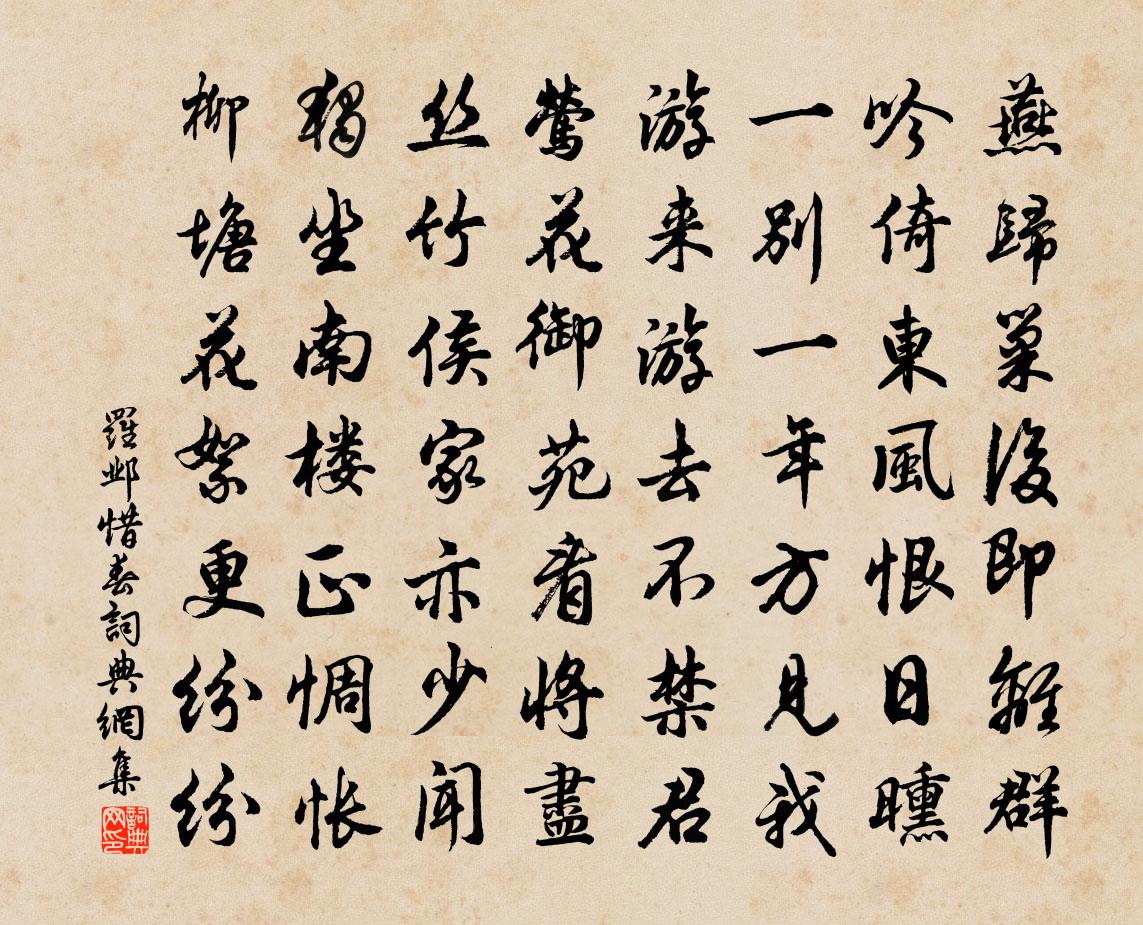 燕歸巢後即離群
吟倚東風恨日曛
一別一年方見我
游来游去不禁君
鶯花御苑看將盡
丝竹侯家亦少聞
獨坐南楼正惆悵
柳塘花絮更紛紛
羅邺惜春詞典網集
詞典网印